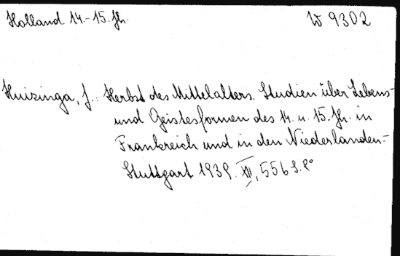 Holland 14.-15. Jh.
W 9302
Huizinga, J.: Herbst des Mittelalters. Studien über Lebens-
und Geistesformen des 14. u. 15. Jh. in
Frankreich und in den Niederlanden.-
Stuttgart 1939. XII, 556 S. 8°